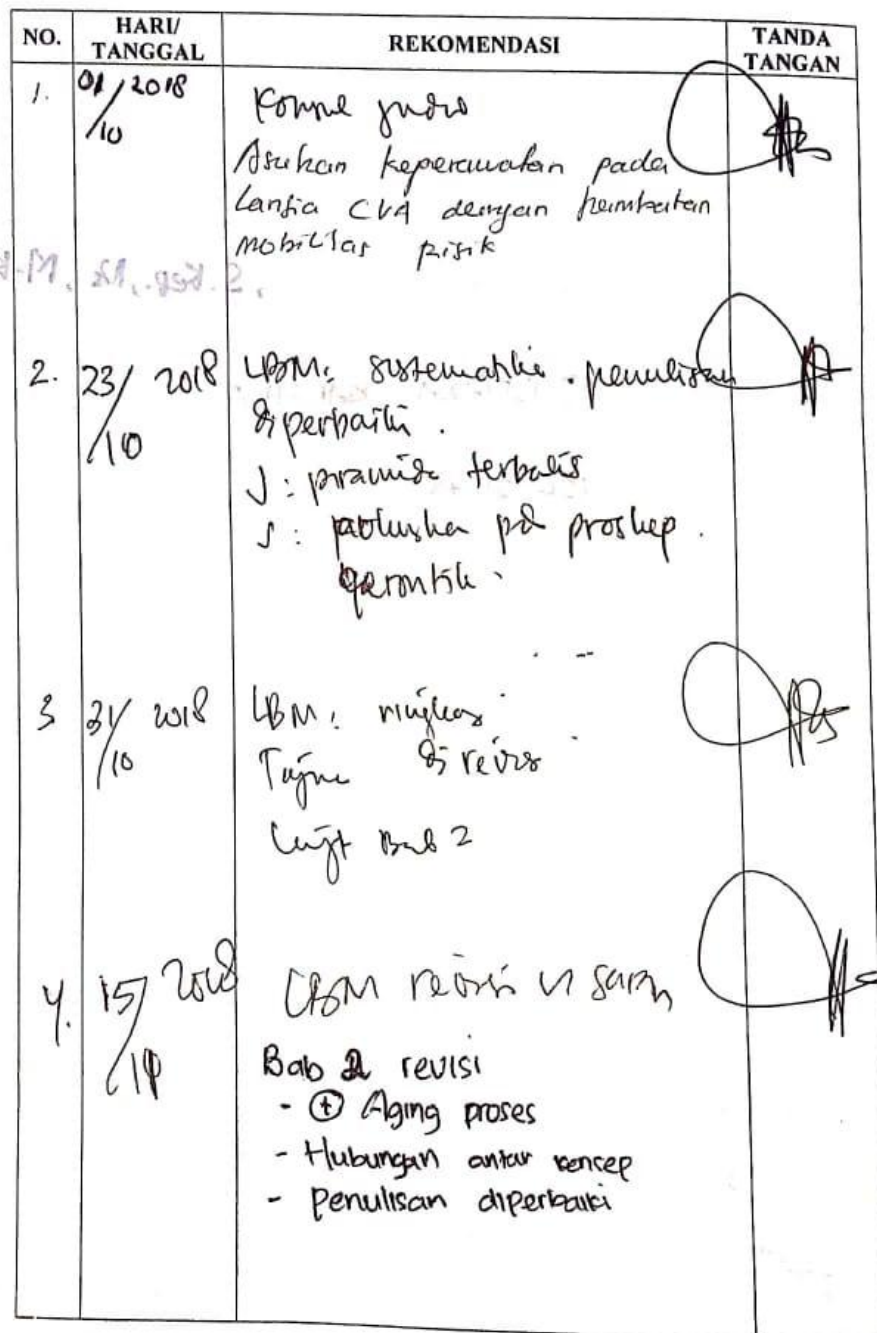 NO. HARI/ TANGGAL REKOMENDASI TANDA TANGAN
1. 01/10 2018
Asuhan keperawatan pada
Lansia CVA dengan hambatan
mobilitas fisik
2. 23/10 2018 LBM: sistematika penulisan
diperbaiki.
: piramida terbalik
: pd proskep.
gerontik.
3 31/10 2018 LBM: ringkas
Tujuan direvisi
Lanjt Bab 2
4. 15/ 2018 LBM revisi saran
Bab 2 revisi
- + Aging proses
- Hubungan antar konsep
- Penulisan diperbaiki